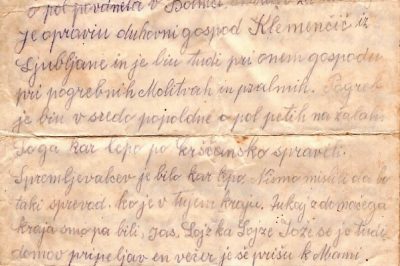 o pol po dneta v Bolnici
je opraviu duhovni gospod Klemenčič iz
Ljubljane in je biu tudi pri onem gospodu
pri pogrebnih Molitvah in psalmih. Pogreb
je biu v sredo popoldne o pol petih na žalah
So ga kar lepo po krščansko spravili.
Spremljevalcev je bilo kar lepo. Nismo mislili da bo
taki sprevod. ko je v tujem kraju. Tukaj z domačega
kraja smo pa bili, gas. Lojzka Lojze Jože se je tudi
domov pripeljav en večer je še prišu k Mami.